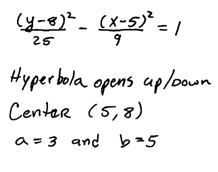 (y-8)²/25 - (x-5)²/9 = 1
Hyperbola opens up/down
Center (5,8)
a=3 and b=5